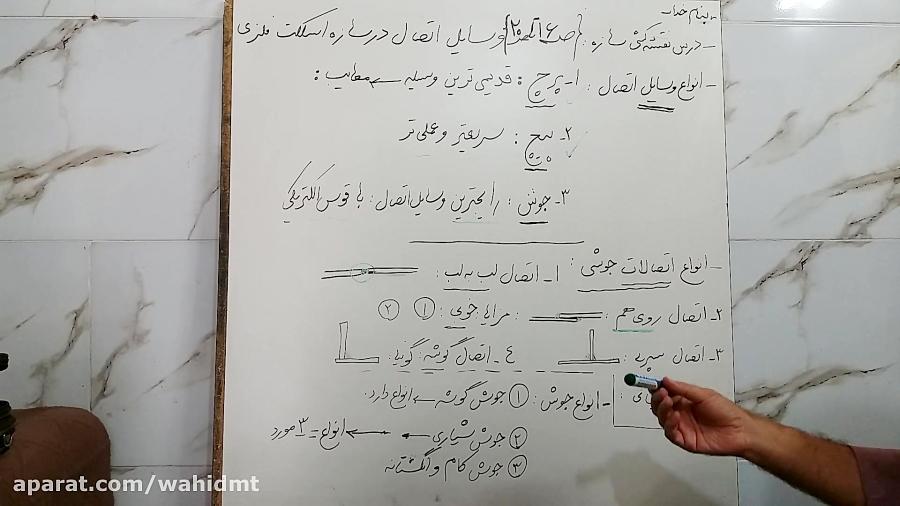 بنام خدا
- درس نقشه کشی سازه: {ص ۱۶ تا ۲۰} وسایل اتصال در سازه اسکلت فلزی
- انواع وسایل اتصال: ۱- پرچ: قدیمی ترین وسیله ← معایب:
۲- پیچ: سریعتر و عملی تر
۳- جوش: رایجترین وسایل اتصال: با قوس الکتریکی
- انواع اتصالات جوشی: ۱- اتصال لب به لب:
۲- اتصال روی هم: مزایا خوبی: ① ②
۳- اتصال سپری: ٤- اتصال گوشه: گونیا:
- انواع جوش: ① جوش گوشه ← انواع دارد.
② جوش شیاری ← ← انواع = ۳ مورد
③ جوش کام و انگشتانه
aparat.com/wahidmt